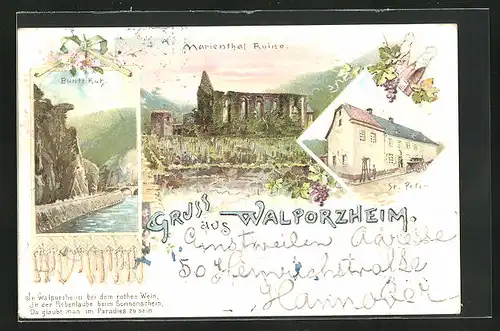 Marienthal Ruine.
Bunte Kuh.
St. Peter
Gruss aus Walporzheim.
Einstweilen Adresse
50 Heinrichstrasse
Hannover
In Walporzheim bei dem rothen Wein,
In der Rebenlaube beim Sonnenschein,
Da glaubt man im Paradies zu sein